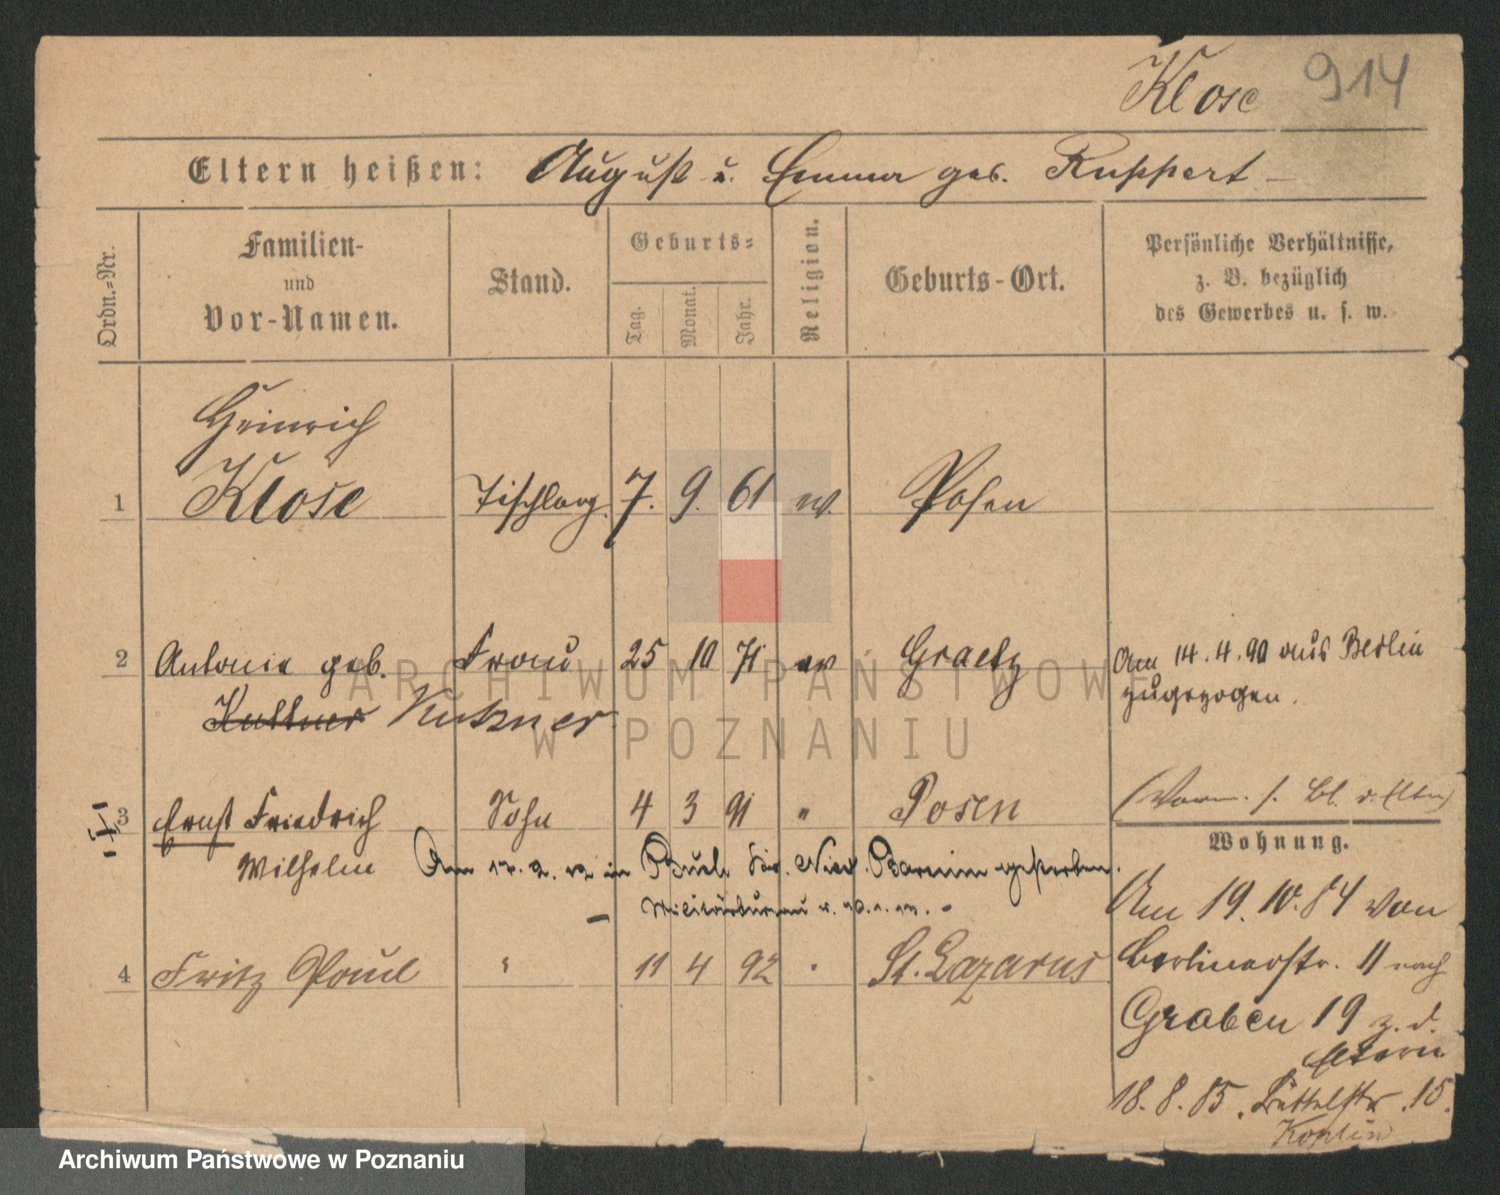 Klose 914
Eltern heißen: August u. Emma geb. Ruppert
Ordn.-Nr. Familien- und Vor-Namen. Stand. Geburts- Tag. Monat. Jahr. Religion. Geburts-Ort. Persönliche Verhältnisse, z. B. bezüglich des Gewerbes u. s. w.
Heinrich
1 Klose Tischlerg. 7. 9. 61 ev. Posen
2 Antonie geb. Frau 25 10 71 ev Graetz Am 14.4.90 aus Berlin
Kuttner Kutzner zugezogen.
3 Ernst Friedrich Sohn 4 3 91 " Posen (Vorm. s. Bl. d. Eltern)
Wohnung.
Wilhelm Am in Buch Kr. Nied. Barnim gestorben.
4 Fritz Paul " 11 4 92 " St. Lazarus
Am 19.10.84 von
Berlinerstr. 11 nach
Graben 19 z. d.
Eltern
18.8.85. Büttelstr. 15.
ARCHIWUM PAŃSTWOWE
W POZNANIU
Archiwum Państwowe w Poznaniu